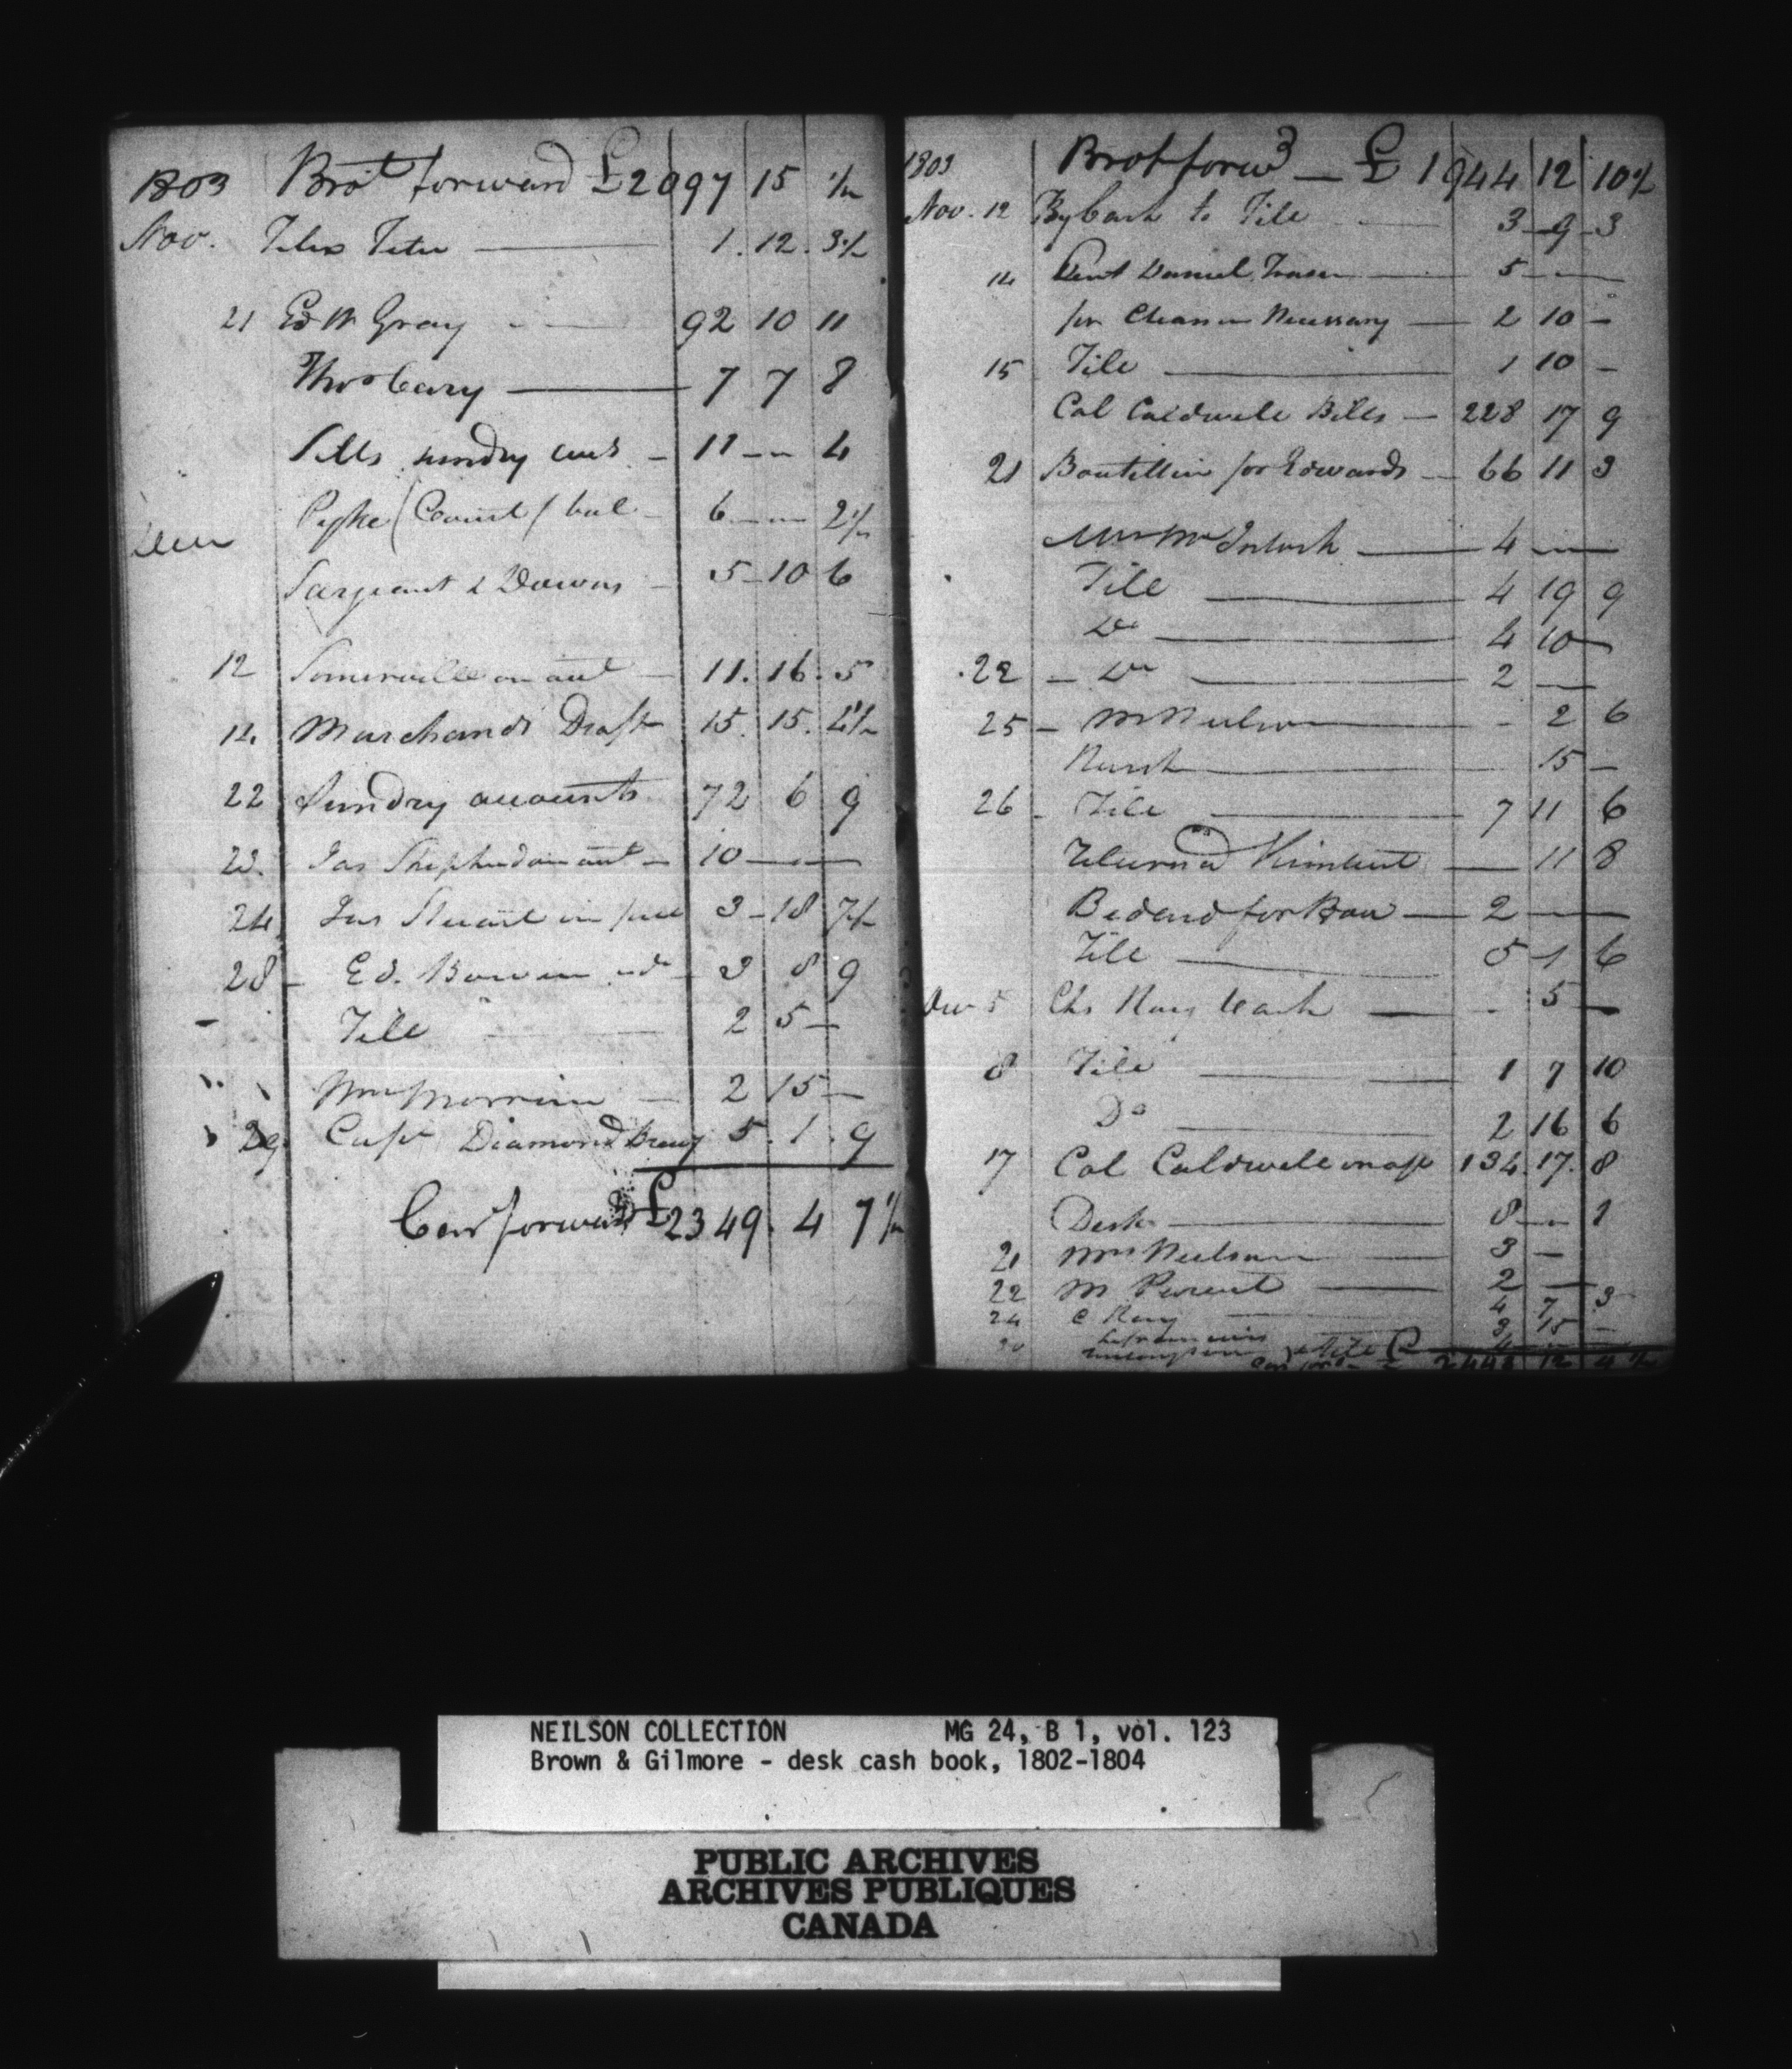 1803 Brot forward £2097 15 ½
Nov. Felix Tetu 1. 12. 3½
21 Ed W Gray 92 10 11
Thos Cary 7 7 8
Sills sundry 11 — 4
Pyke (Court) bal 6 — 2½
Decr
Sargeant & Dawons 5 10 6
12 Somerville on acct 11. 16. 5
12. Marchands Draft 15. 15. 4½
22 Sundry accounts 72 6 9
23. Jas Shepherd on acct 10 — —
24 Jas Stuart in full 3 18 7½
28 Ed. Bowen do 3 8 9
Till 2 5 —
Wm Morrin 2 15 —
29 Capt Diamond 5. 1. 9
Carr forward £2349. 4 7½
1803 Brot forwd £ 1944 12 10½
Nov. 12 By Cash to Till 3 9 3
14 Lent Daniel Fraser 5 — —
for Cleaning Necessary 2 10 —
15 Till 1 10 —
Col Caldwell Bills 228 17 9
21 Boutillier for Edwards 66 11 3
Mrs McIntosh 4 — —
Till 4 19 9
Do 4 10 —
22 Do 2 —
25 M Neilson - 2 6
15 —
26 Till 7 11 6
11 8
Bedard for 2 — —
Till 5 1 6
Dec 5 Chs Roy Cash - 5 —
8 Till 1 7 10
Do 2 16 6
17 Col Caldwell 134. 17. 8
Desk 8 — 1
21 Mrs Neilson 3 —
22 M Parent 2 —
24 C Roy 4 7 3
3 15 —
NEILSON COLLECTION MG 24, B 1, vol. 123
Brown & Gilmore - desk cash book, 1802-1804
PUBLIC ARCHIVES
ARCHIVES PUBLIQUES
CANADA